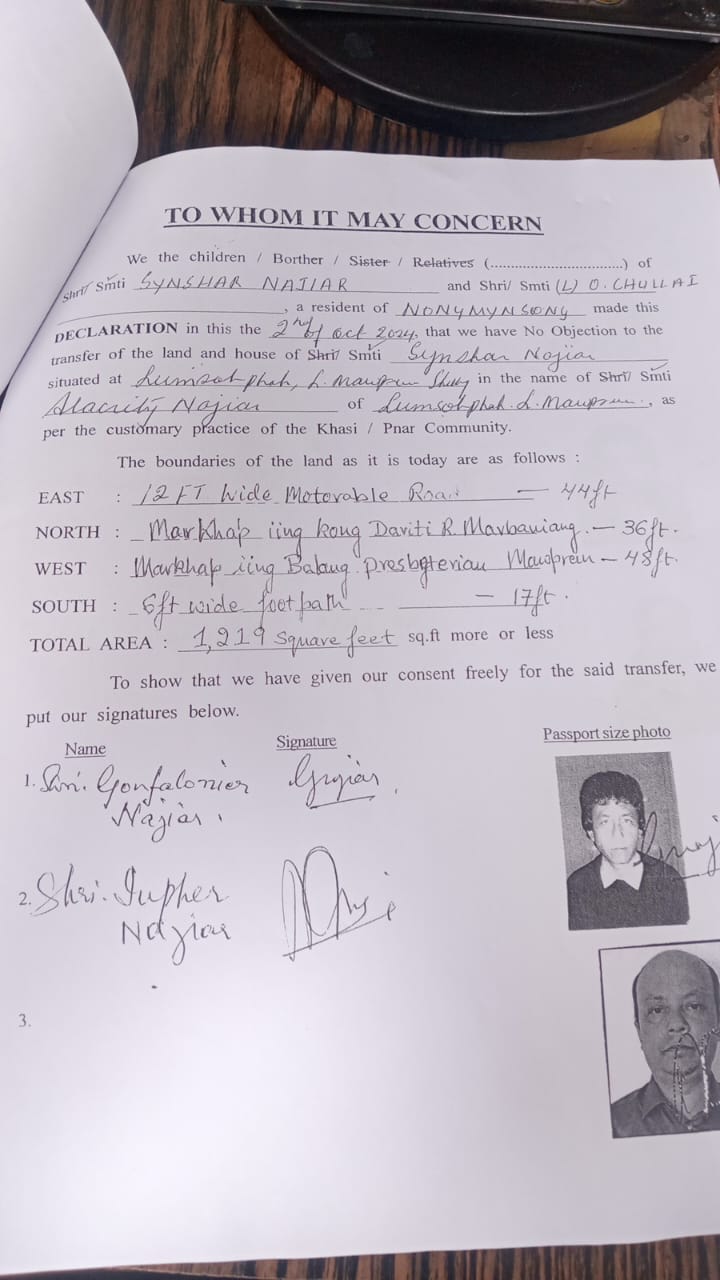 TO WHOM IT MAY CONCERN
We the children / Borther / Sister / Relatives (.................................) of
Shri/ Smti SYNSHAR NAJIAR and Shri/ Smti (L) O. CHULLAI
, a resident of NONGMYNSONG made this
DECLARATION in this the 2nd of Oct 2024, that we have No Objection to the
transfer of the land and house of Shri/ Smti Synshar Najiar
situated at Lumsohphoh, L. Mawprem Shillong in the name of Shri/ Smti
Alacrity Najiar of Lumsohphoh. L. Mawprem., as
per the customary practice of the Khasi / Pnar Community.
The boundaries of the land as it is today are as follows :
EAST : 12 FT Wide Motorable Road — 44ft
NORTH : Markhap iing kong Daviti R. Marbaniang. — 36ft.
WEST : Markhap iing Balang Presbyterian Mawprem — 48ft.
SOUTH : 6ft wide footpath — 17ft.
TOTAL AREA : 1,219 Square feet sq.ft more or less
To show that we have given our consent freely for the said transfer, we
put our signatures below.
Name Signature Passport size photo
1. Shri. Gonfalonier
Najiar.
2. Shri. Jupher
Najiar
3.